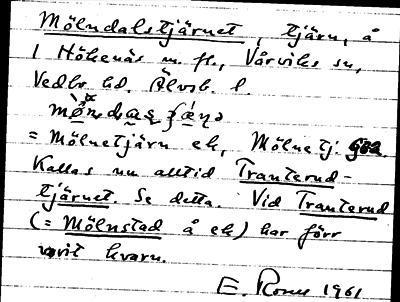 Mölndalstjärnet, tjärn, å
1 Hökenäs m. fl., Vårviks sn,
Vedbo hd. Älvsb. l.
= Mölnetjärn ek, Mölnetj.
Kallas nu alltid Tranterud-
tjärnet. Se detta. Vid Tranterud
(= Mölnstad å ek) har förr
varit kvarn.
E. 1961